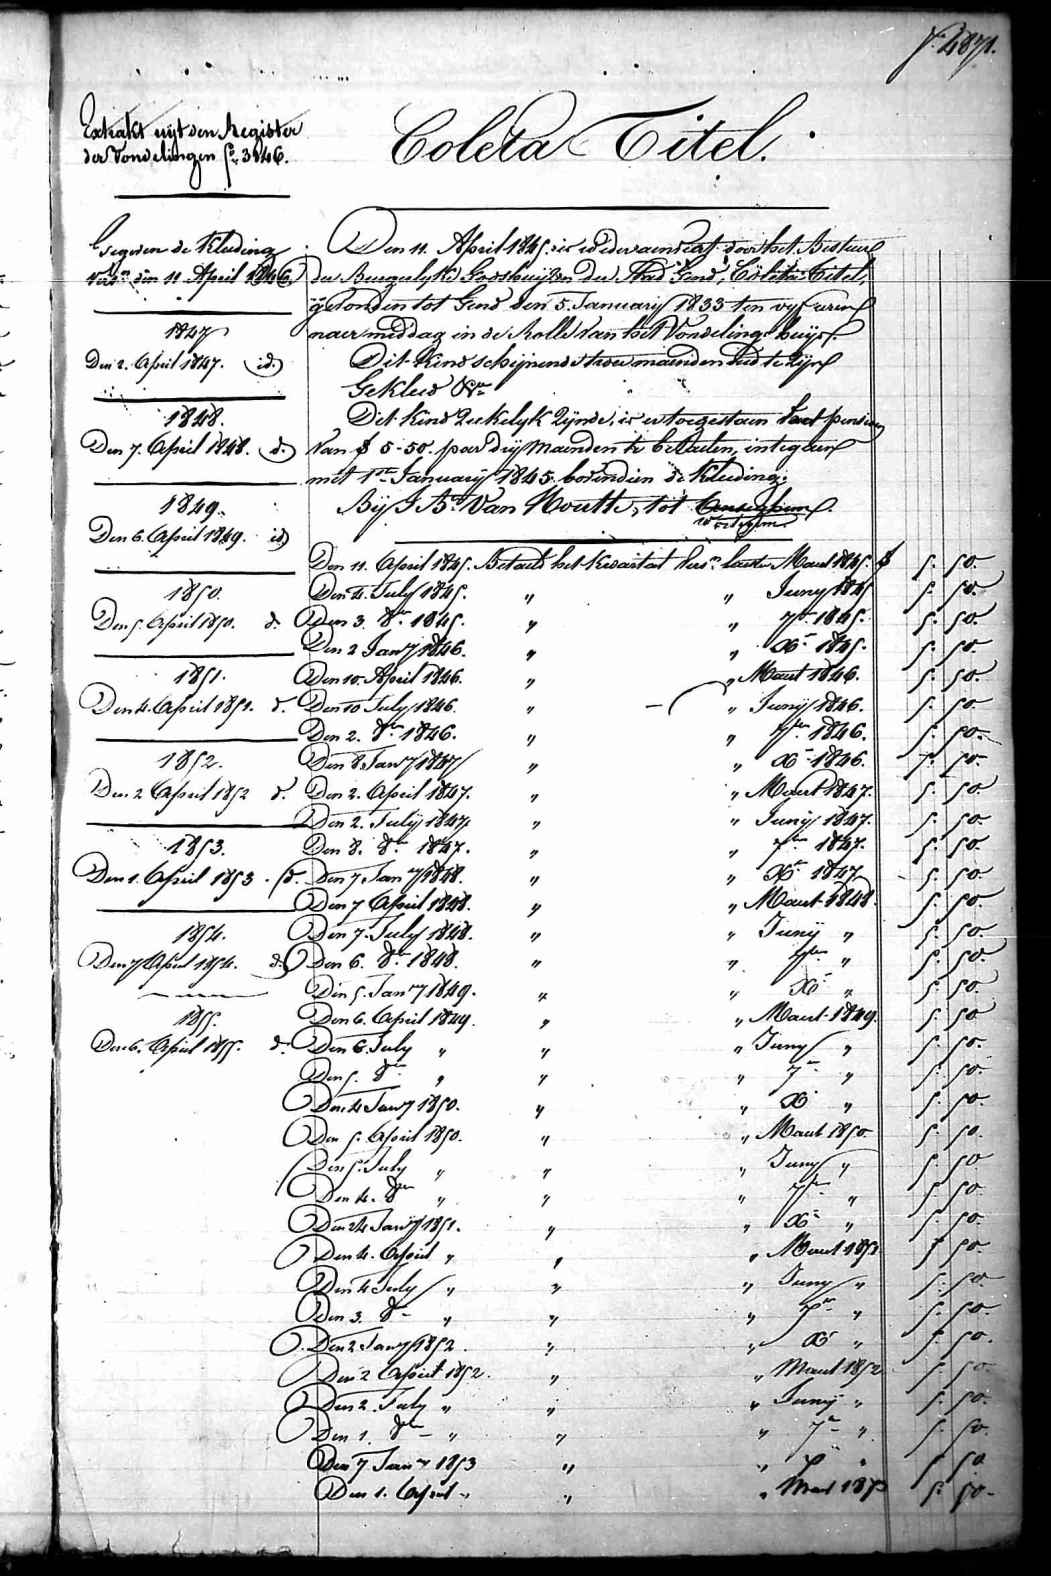 f° 4871.
Extrakt uijt den Register
der Vondelingen f° 3846.
Coleta Titel.
Gegeven de Kleeding
den 11 April 1846.
1847
Den 2. April 1847. id.
1848.
Den 7. April 1848. id.
1849.
Den 6. April 1849. id
1850.
Den 5. April 1850. d.
1851.
Den 4. April 1851. d.
1852.
Den 2 April 1852 d.
1853.
Den 1. April 1853. d.
1854.
Den 7 April 1854. d.
1855.
Den 6. April 1855. d.
Den 11. April 1845. is wederaenveert door het Bestuer
der Burgelyke Godshuijzen der Stad Gend, Coleta Titel,
gevonden tot Gend den 5. January 1833 ten vyf uren
naermiddag in de Rolle van het Vondelinge huijs.
Dit kind schijnende twee maenden oud te zijn
Gekleed &ra
Dit kind ziekelyk zijnde, is er toegestaen het pensioen
van f 5-50. par drij maenden te betaelen, integaen
met 1er January 1845 bovendien de kleeding.
Bij J. Bte Van Houtte, tot
Wetteghem
Den 11. April 1845. Betaeld het kwartael laetste Maert 1845. f 5. 50.
Den 4. July 1845. " " Juny 1845 5. 50.
Den 3. 8er 1845. " " 7er 1845. 5. 50.
Den 2 Jany 1846. " " Xer 1845. 5. 50.
Den 10. April 1846. " " Maert 1846. 5. 50.
Den 10 July 1846. " " Junij 1846. 5. 50
Den 2. 8er 1846. " " 7er 1846. 5. 50.
Den 8 Jany 1847 " " Xer 1846. 5. 50.
Den 2. April 1847. " " Maert 1847. 5. 50
Den 2. July 1847 " " Junij 1847. 5. 50.
Den 8. 8er 1847. " " 7er 1847. 5. 50.
Den 7 Jany 1848. " " Xer 1847 5. 50
Den 7 April 1848. " " Maert 1848. 5. 50
Den 7. July 1848. " " Junij " 5. 50.
Den 6. 8er 1848. " " 7er " 5. 50.
Den 5. Jany 1849. " " Xer " 5. 50.
Den 6. April 1849. " " Maert 1849. 5. 50
Den 6 July " " " Juny " 5. 50.
Den 5. 8er " " " 7er " 5. 50.
Den 4 Jany 1850. " " Xer " 5. 50.
Den 5. April 1850. " " Maert 1850 5. 50.
Den 5 July " " " Juny " 5. 50
Den 4. 8er " " " 7er " 5. 50
Den 24 Jany 1851. " " Xer " 5. 50.
Den 4. April " " " Maert 1851 5 50.
Den 4 July " " " Juny " 5. 50
Den 3. 8er " " " 7er " 5. 50.
Den 2 Jany 1852. " " Xer " 5 50.
Den 2 April 1852. " " Maert 1852 5. 50
Den 2. July " " " Junij " 5. 50.
Den 1. 8er " " " 7er " 5. 50.
Den 7 Jany 1853 " " " 5 50
Den 1. April " " " Maert 1853 5. 50.